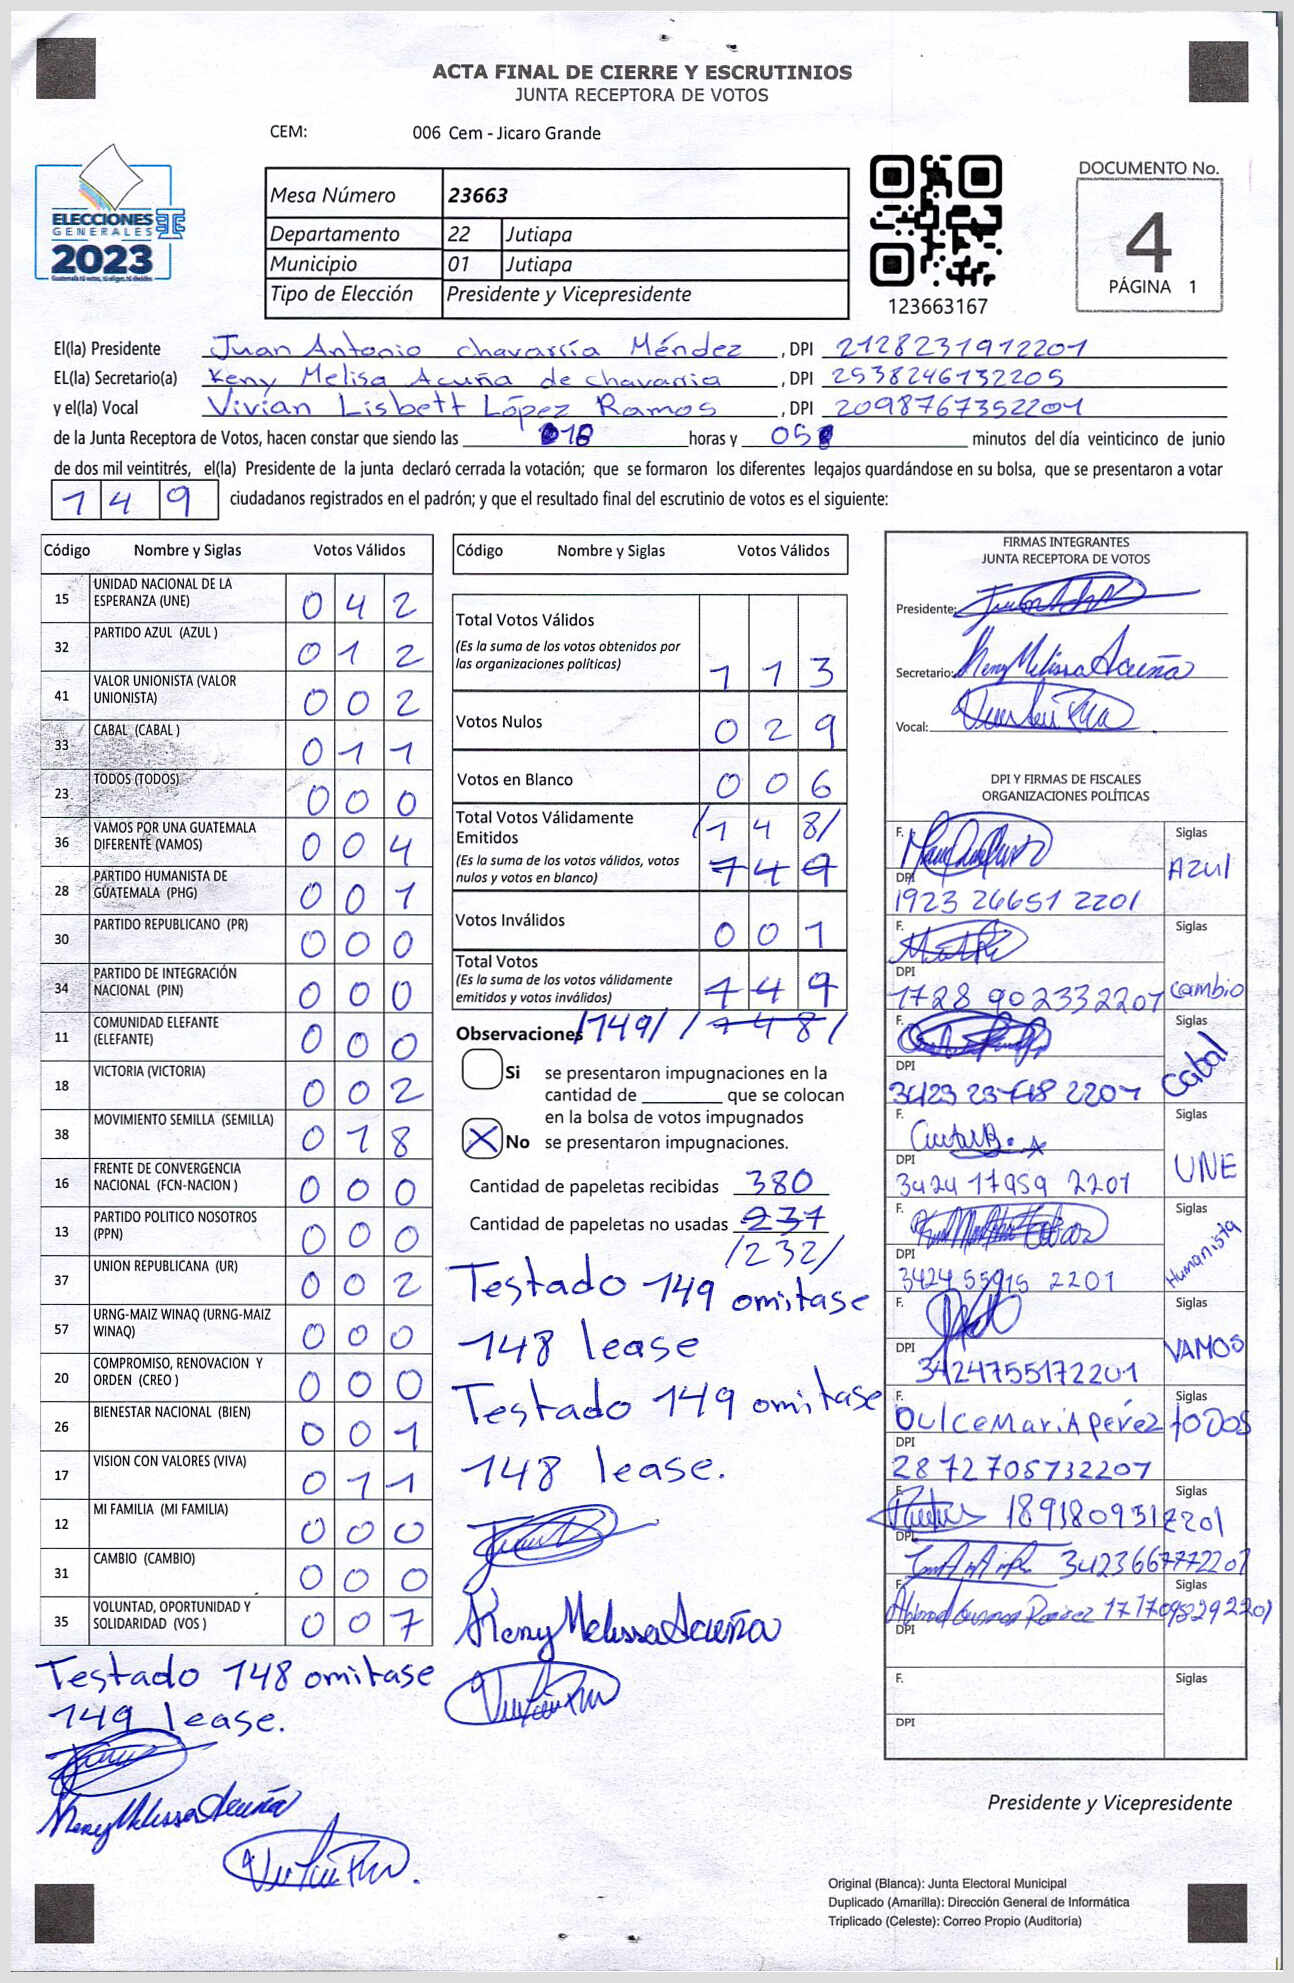 ACTA FINAL DE CIERRE Y ESCRUTINIOS
JUNTA RECEPTORA DE VOTOS
CEM: 006 Cem - Jicaro Grande
ELECCIONES
GENERALES
2023
Mesa Número 23663
Departamento 22 Jutiapa
Municipio 01 Jutiapa
Tipo de Elección Presidente y Vicepresidente
123663167
DOCUMENTO No.
4
PÁGINA 1
El(la) Presidente Juan Antonio chavarría Méndez , DPI 2128231912201
EL(la) Secretario(a) Keny Melisa Acuña de chavarria , DPI 2538246132205
y el(la) Vocal Vivian Lisbett López Ramos , DPI 2098767352201
de la Junta Receptora de Votos, hacen constar que siendo las 18 horas y 05 minutos del día veinticinco de junio
de dos mil veintitrés, el(la) Presidente de la junta declaró cerrada la votación; que se formaron los diferentes legajos guardándose en su bolsa, que se presentaron a votar
149 ciudadanos registrados en el padrón; y que el resultado final del escrutinio de votos es el siguiente:
Código Nombre y Siglas Votos Válidos
15 UNIDAD NACIONAL DE LA ESPERANZA (UNE) 042
32 PARTIDO AZUL (AZUL ) 012
41 VALOR UNIONISTA (VALOR UNIONISTA) 002
33 CABAL (CABAL ) 011
23 TODOS (TODOS) 000
36 VAMOS POR UNA GUATEMALA DIFERENTE (VAMOS) 004
28 PARTIDO HUMANISTA DE GUATEMALA (PHG) 001
30 PARTIDO REPUBLICANO (PR) 000
34 PARTIDO DE INTEGRACIÓN NACIONAL (PIN) 000
11 COMUNIDAD ELEFANTE (ELEFANTE) 000
18 VICTORIA (VICTORIA) 002
38 MOVIMIENTO SEMILLA (SEMILLA) 018
16 FRENTE DE CONVERGENCIA NACIONAL (FCN-NACION ) 000
13 PARTIDO POLITICO NOSOTROS (PPN) 000
37 UNION REPUBLICANA (UR) 002
57 URNG-MAIZ WINAQ (URNG-MAIZ WINAQ) 000
20 COMPROMISO, RENOVACION Y ORDEN (CREO ) 000
26 BIENESTAR NACIONAL (BIEN) 001
17 VISION CON VALORES (VIVA) 011
12 MI FAMILIA (MI FAMILIA) 000
31 CAMBIO (CAMBIO) 000
35 VOLUNTAD, OPORTUNIDAD Y SOLIDARIDAD (VOS ) 007
Testado 148 omitase
149 lease.
Keny Melissa Acuña
Código Nombre y Siglas Votos Válidos
Total Votos Válidos
(Es la suma de los votos obtenidos por
las organizaciones políticas) 113
Votos Nulos 029
Votos en Blanco 006
Total Votos Válidamente
Emitidos /148/
(Es la suma de los votos válidos, votos
nulos y votos en blanco) 149
Votos Inválidos 001
Total Votos
(Es la suma de los votos válidamente
emitidos y votos inválidos) 149
Observaciones /149/ /148/
Si se presentaron impugnaciones en la
cantidad de ________ que se colocan
en la bolsa de votos impugnados
No se presentaron impugnaciones.
Cantidad de papeletas recibidas 380
Cantidad de papeletas no usadas 237
/232/
Testado 149 omitase
148 lease
Testado 149 omitase
148 lease.
Keny Melissa Acuña
FIRMAS INTEGRANTES
JUNTA RECEPTORA DE VOTOS
Presidente:
Secretario: Keny Melissa Acuña
Vocal:
DPI Y FIRMAS DE FISCALES
ORGANIZACIONES POLÍTICAS
F. Siglas
Azul
DPI
1923 26651 2201
F. Siglas
DPI
1728 902332201 Cambio
F. Siglas
Cabal
DPI
F. Siglas
UNE
DPI
3424 17959 2201
F. Siglas
Humanista
DPI
3424 55915 2201
F. Siglas
VAMOS
DPI
3424755172201
F. Siglas
DulceMariApérez todos
DPI
2872705732207
F. Siglas
1891809312201
DPI
3423667772201
F. Siglas
1717098292201
DPI
F. Siglas
DPI
Presidente y Vicepresidente
Original (Blanca): Junta Electoral Municipal
Duplicado (Amarilla): Dirección General de Informática
Triplicado (Celeste): Correo Propio (Auditoría)